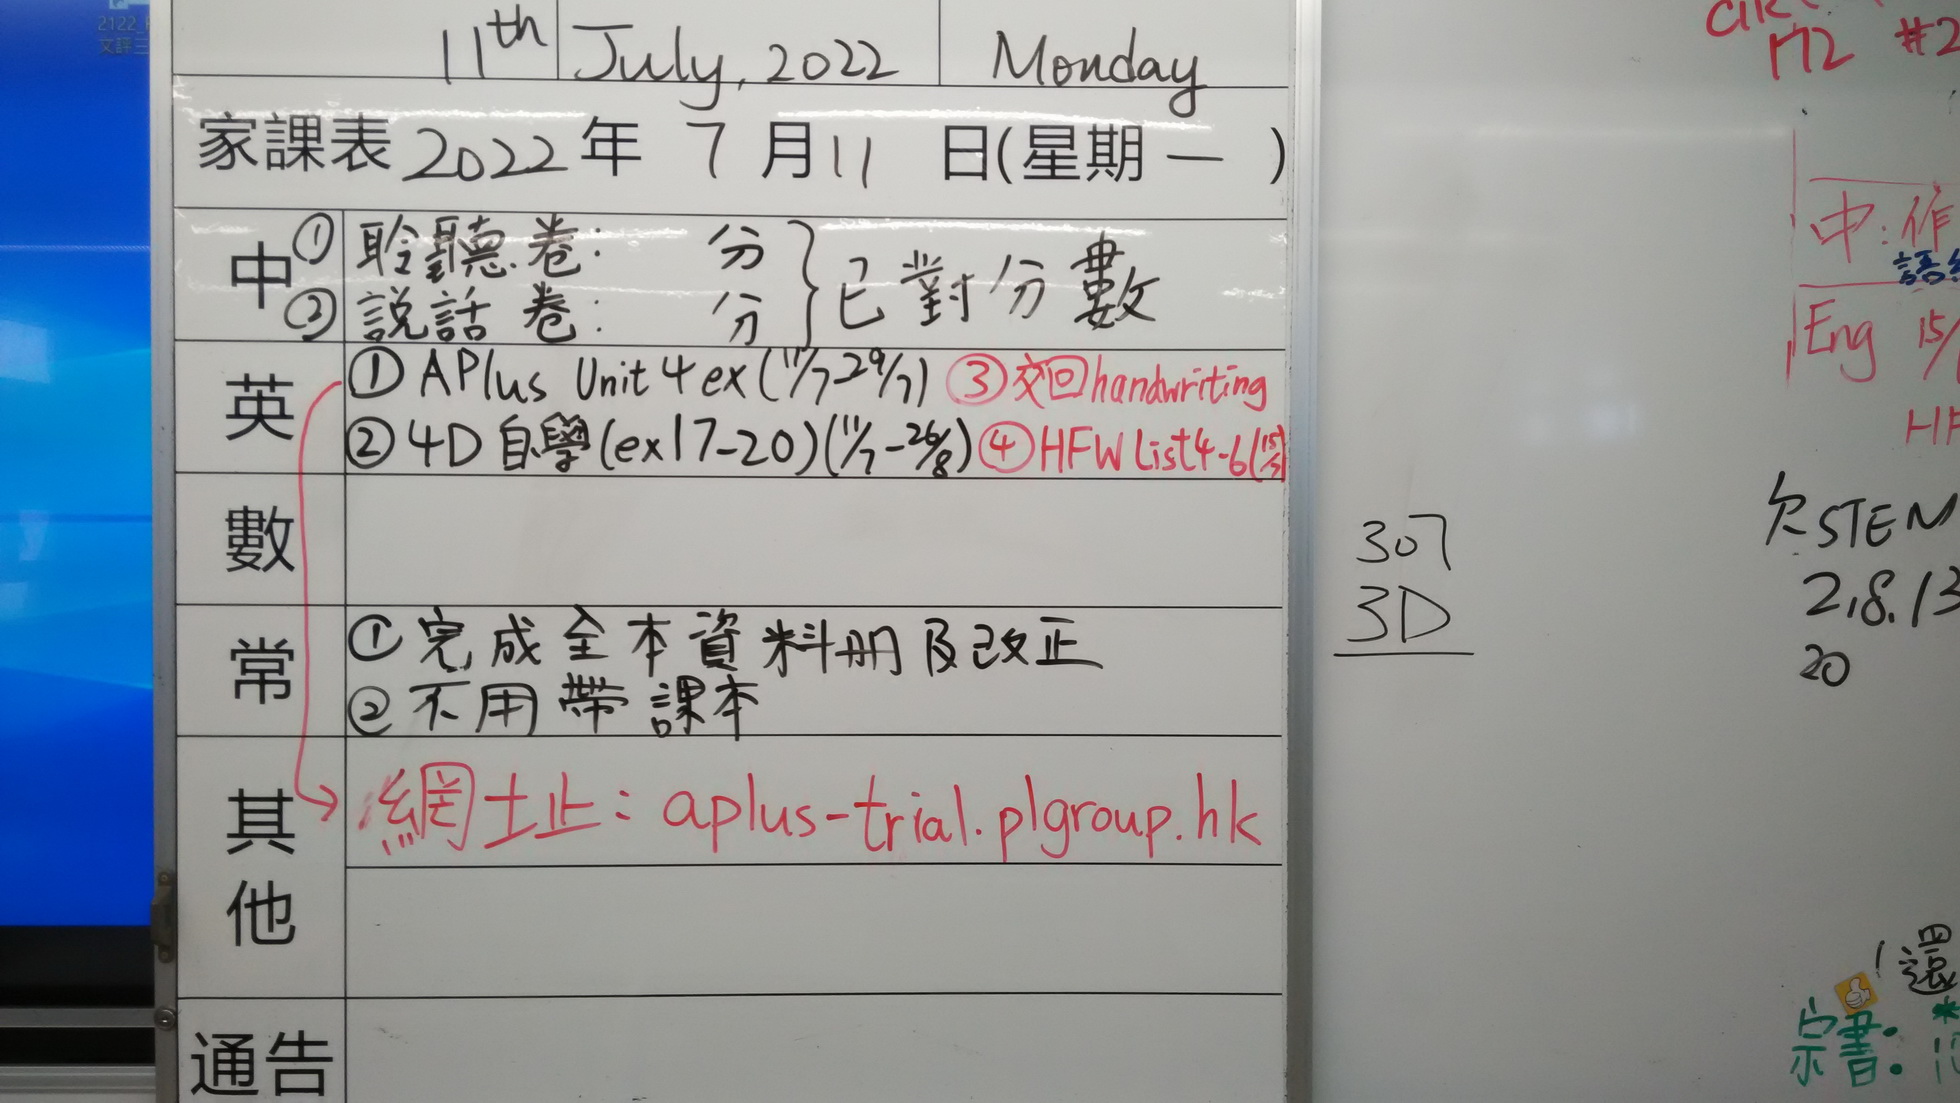 11th July, 2022 Monday
家課表 2022 年 7 月 11 日(星期 一 )
中 ① 聆聽卷: 分 } 已對分數
② 說話卷: 分
英 ① APlus Unit 4 ex (11/7-29/7) ③ 交回handwriting
② 4D 自學(ex17-20)(11/7-26/8) ④ HFW List4-6(15/7)
數
常 ① 完成全本資料册及改正
② 不用帶課本
其他 網址: aplus-trial.plgroup.hk
通告
307
3D
172 #2
中:作
Eng 15/
HF
欠STEM
2,8,13
20
還
宗書: